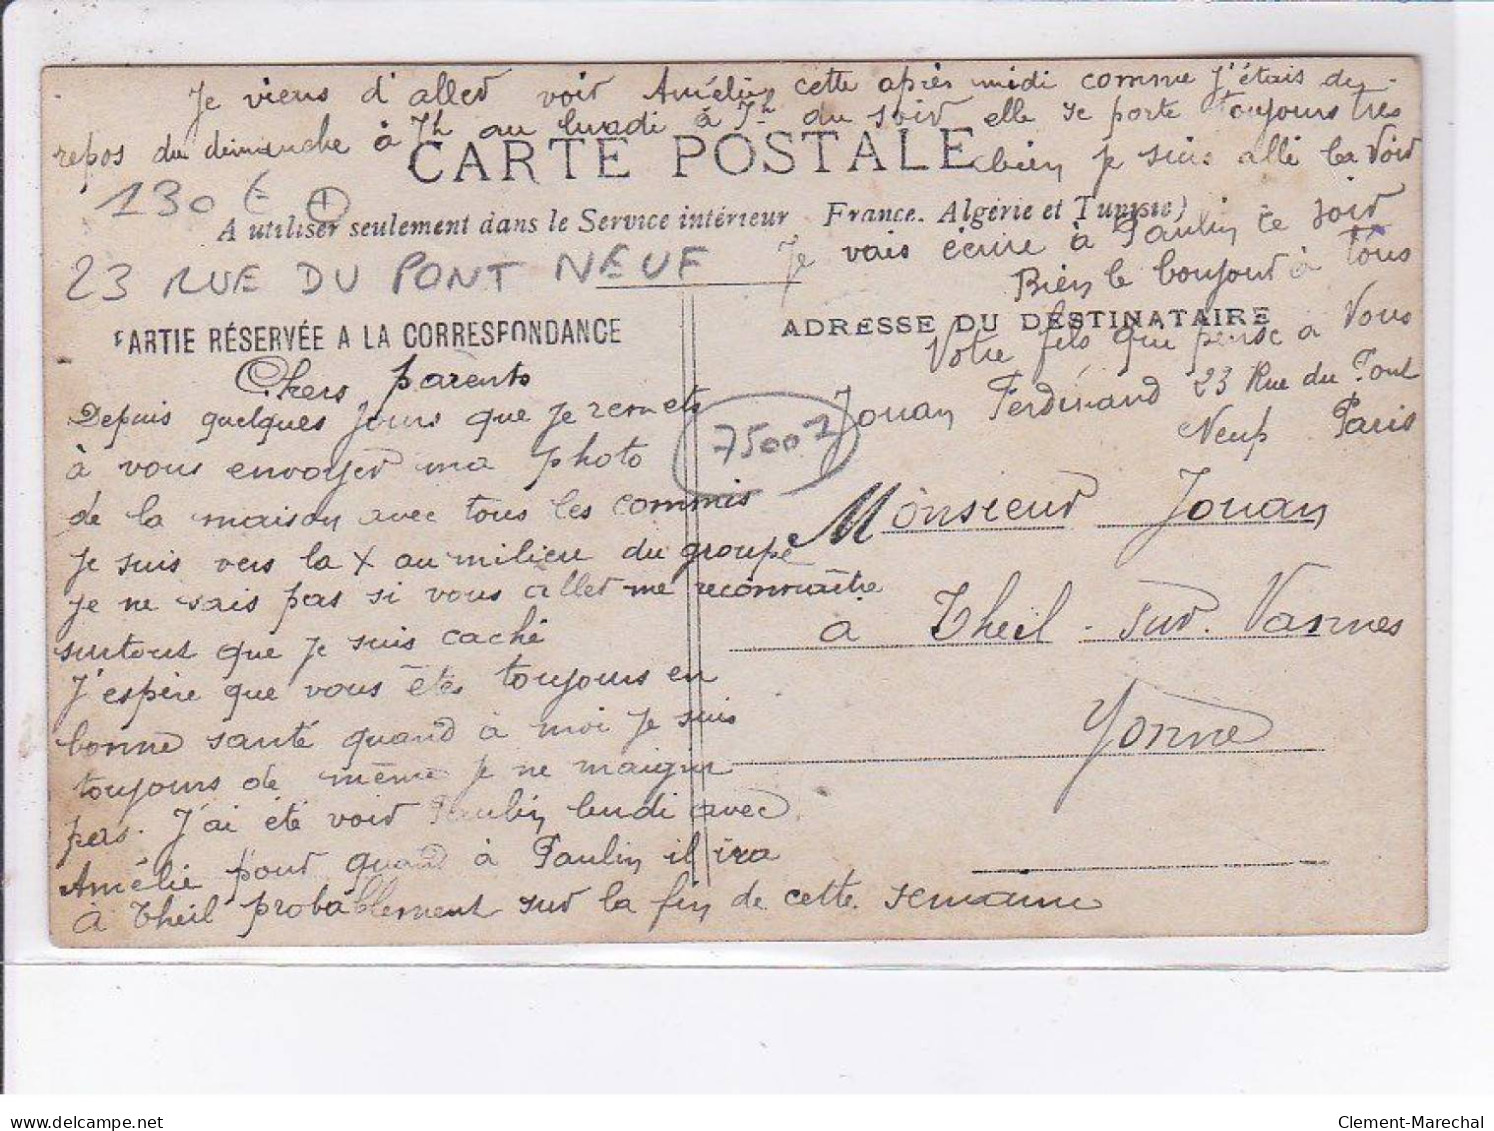 Je viens d'aller voir Amélie cette après midi comme j'étais de
repos du dimanche à 7h au lundi à 7h du soir elle se porte toujours très
bien je suis allé la voir
CARTE POSTALE
130 € +
A utiliser seulement dans le Service intérieur France, Algérie et Tunisie)
Je vais écrire à Paulin ce soir
23 RUE DU PONT NEUF
Bien le bonjour à tous
PARTIE RÉSERVÉE A LA CORRESPONDANCE
ADRESSE DU DESTINATAIRE
Votre fils qui pense a Vous
Jouan Ferdinand 23 Rue du Pont
Neuf Paris
75001
Chers parents
Depuis quelques jours que je remets
à vous envoyer ma photo
de la maison avec tous les commis
je suis vers la X au milieu du groupe
je ne sais pas si vous aller me reconnaître
surtout que je suis caché
J'espère que vous êtes toujours en
bonne santé quand à moi je suis
toujours de même je ne maigri
pas. J'ai été voir Paulin lundi avec
Amélie pour quand à Paulin il ira
à Theil probablement sur la fin de cette semaine
Monsieur Jouan
a Theil - sur - Vannes
Yonne
Clement-Marechal
delcampe.net